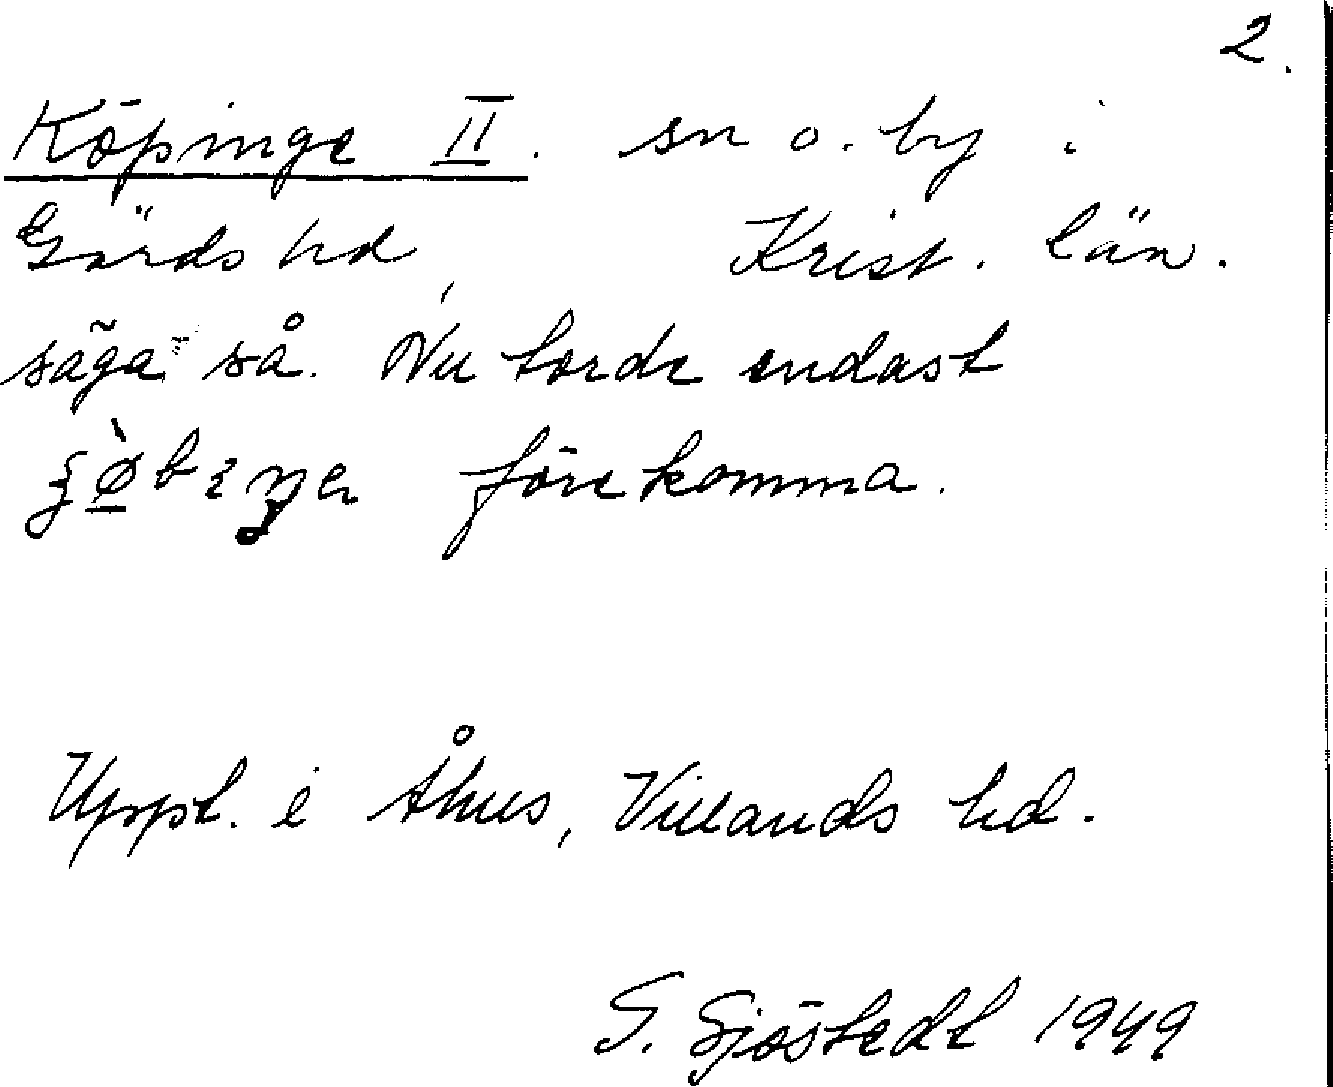 2.
Köpinge II. sn o. by i
Gärds hd, Krist. län.
säga så. Nu torde endast
förekomma.
Uppt. i Åhus, Villands hd.
G. Sjöstedt 1949